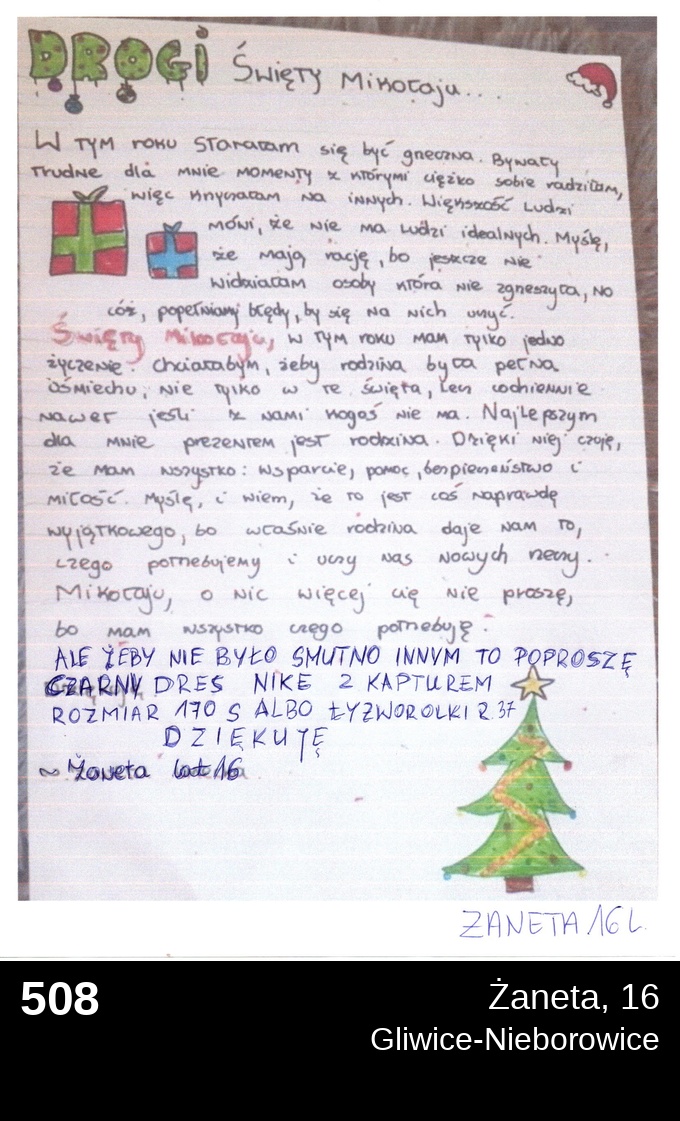 DROGI Święty Mikołaju...
W tym roku starałam się być grzeczna. Bywały
trudne dla mnie momenty z którymi ciężko sobie radziłam,
więc krzyczałam na innych. Większość ludzi
mówi, że nie ma ludzi idealnych. Myślę,
że mają rację, bo jeszcze nie
widziałam osoby która nie zgrzeszyła, no
cóż, popełniamy błędy, by się na nich uczyć.
Święty Mikołaju, w tym roku mam tylko jedno
życzenie. Chciałabym, żeby rodzina była pełna
uśmiechu, nie tylko w te święta, lecz codziennie
nawet jeśli z nami kogoś nie ma. Najlepszym
dla mnie prezentem jest rodzina. Dzięki niej czuję,
że mam wszystko: wsparcie, pomoc, bezpieczeństwo i
miłość. Myślę, i wiem, że to jest coś naprawdę
wyjątkowego, bo właśnie rodzina daje nam to,
czego potrzebujemy i uczy nas nowych rzeczy.
Mikołaju, o nic więcej cię nie proszę,
bo mam wszystko czego potrzebuję.
ALE ŻEBY NIE BYŁO SMUTNO INNYM TO POPROSZĘ
CZARNY DRES NIKE Z KAPTUREM
ROZMIAR 170 S ALBO ŁYŻWOROLKI R.37
DZIĘKUJĘ
~ Żaneta lat 16
ŻANETA 16 L.
508
Żaneta, 16
Gliwice-Nieborowice